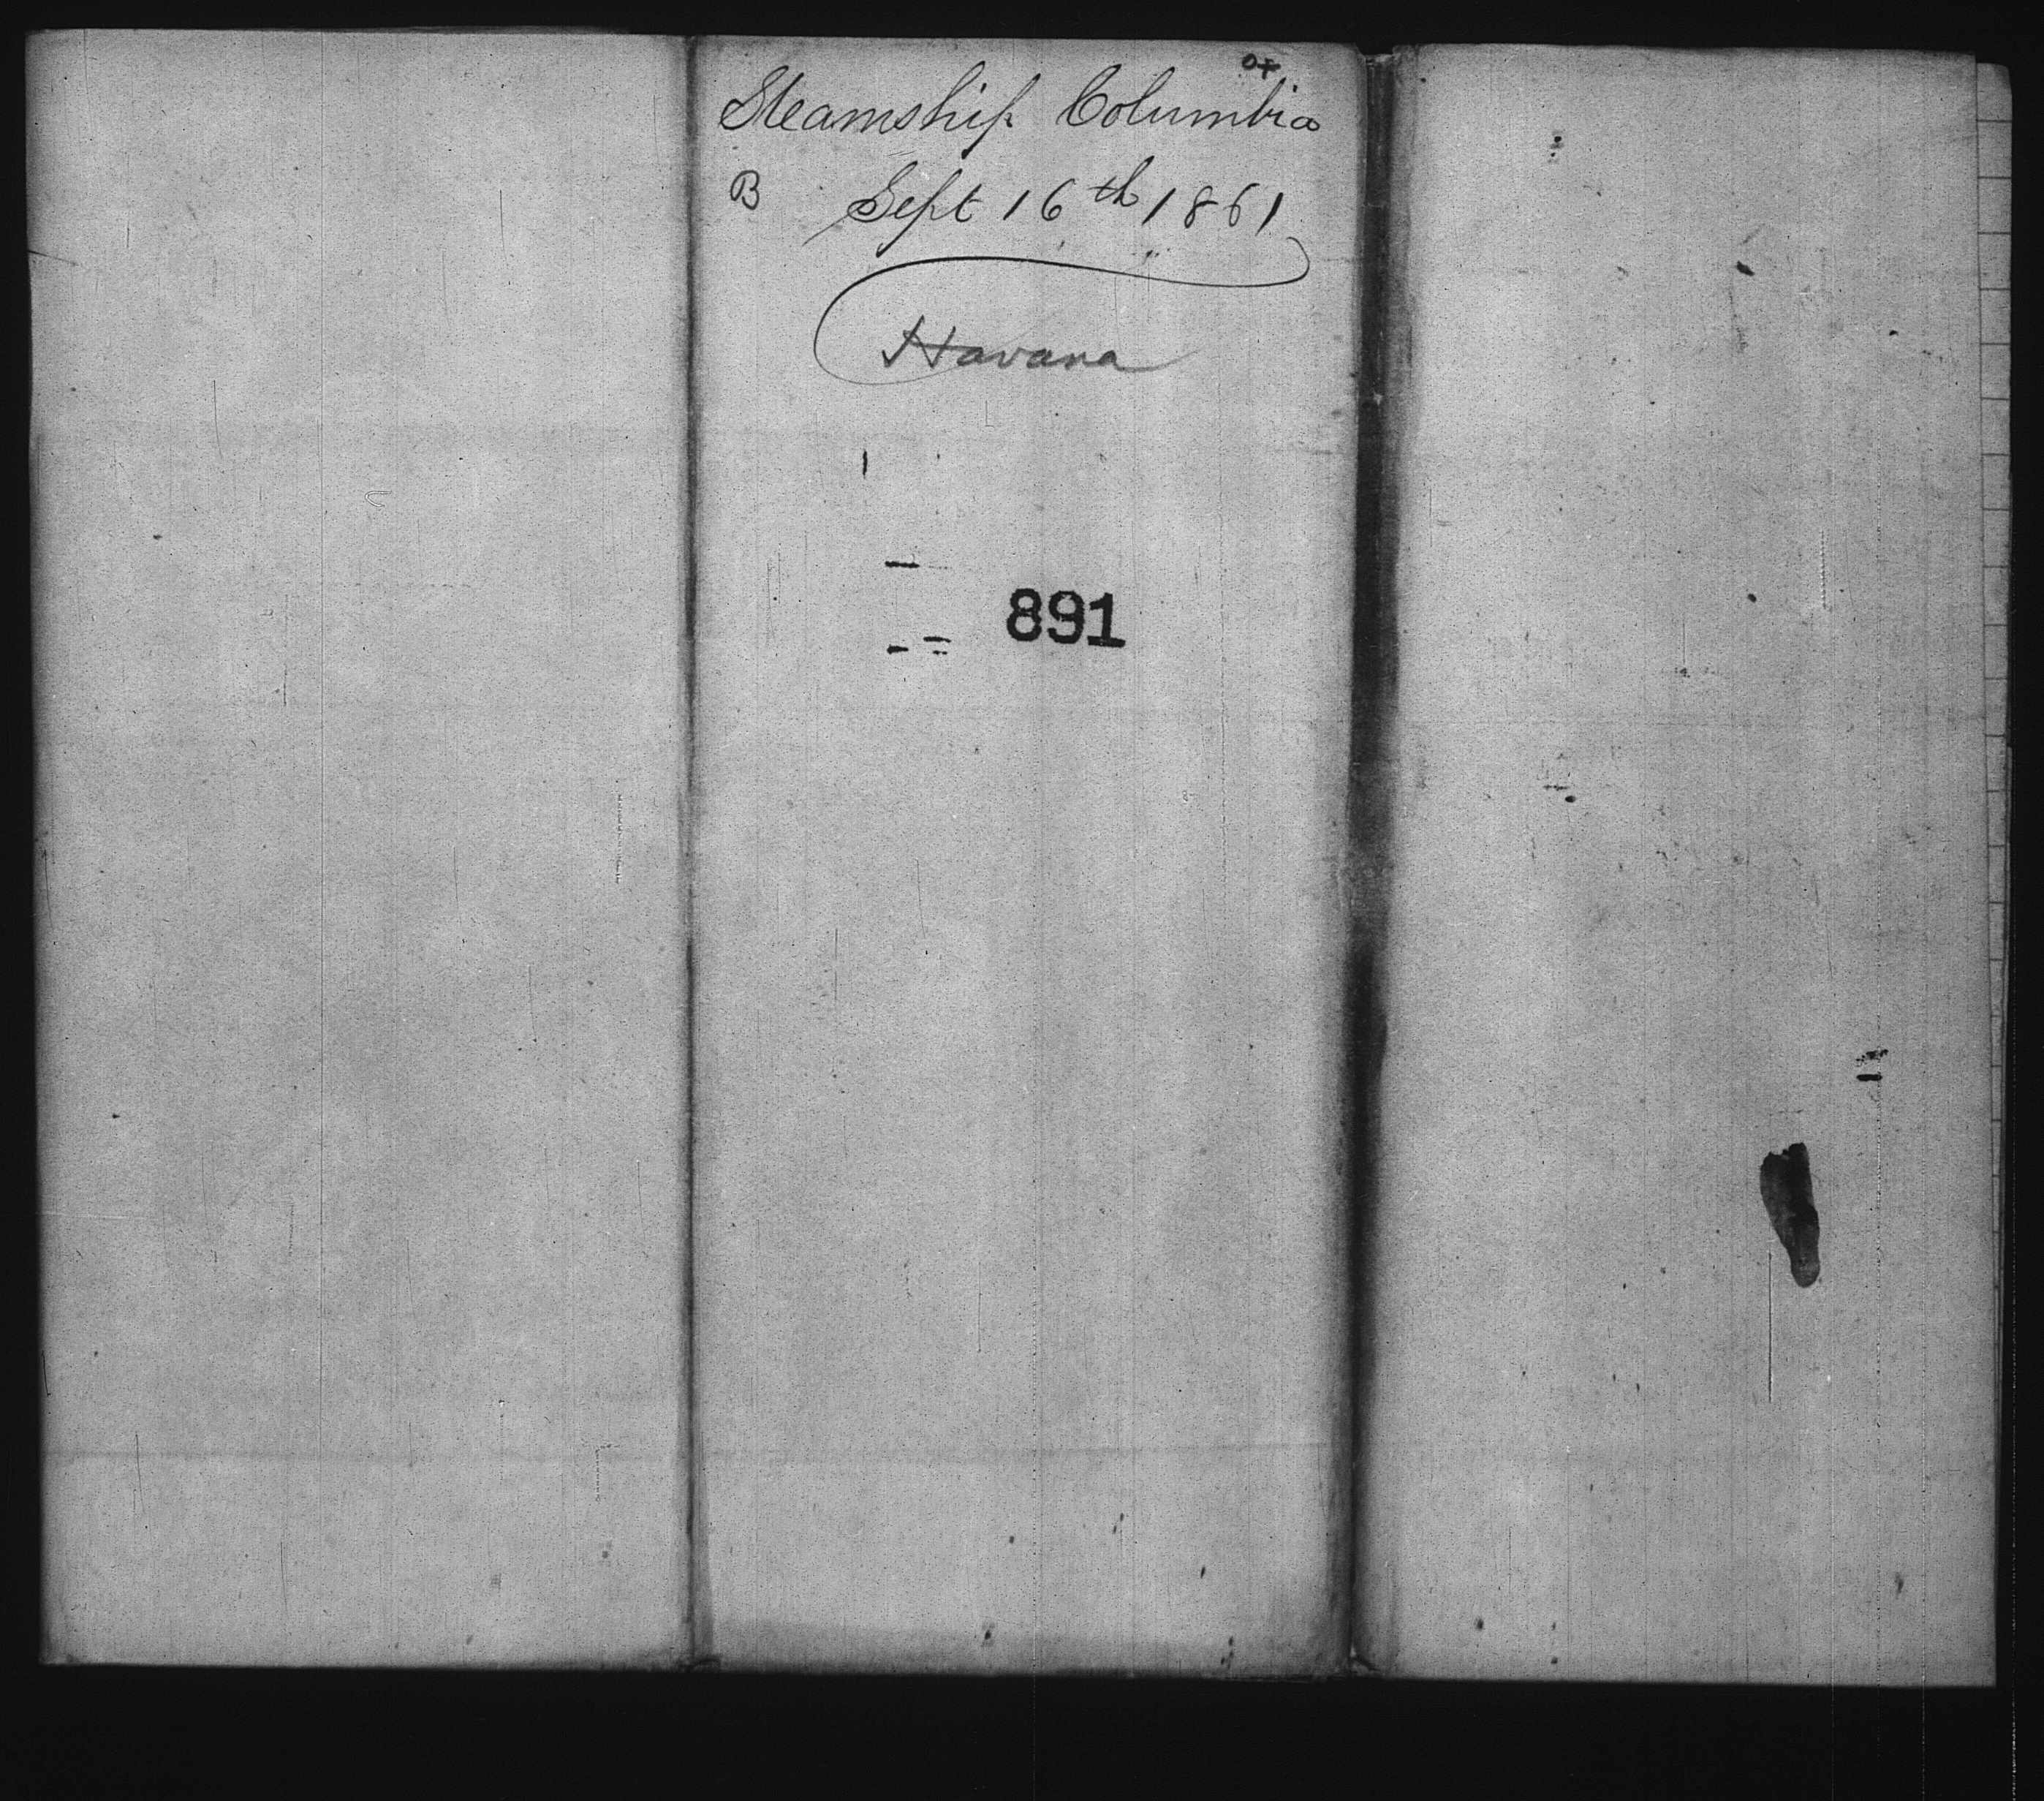 Steamship Columbia
B Sept 16th 1861
Havana
891